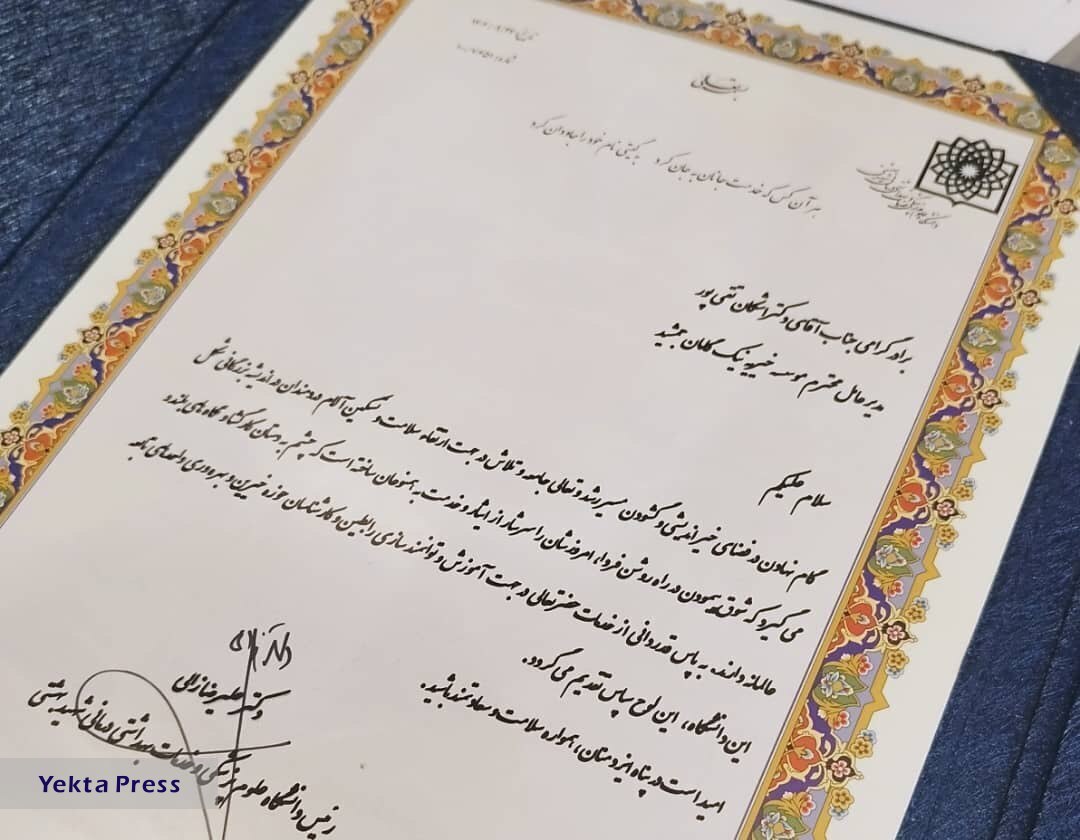 بسمه تعالی
هر آن کسی که خدمت جانان به جان کرد به گیتی نام خود را جاودان کرد
برادر گرامی جناب آقای دکتر اشکان تقی پور
مدیرعامل محترم موسسه خیریه نیک گامان جمشید
سلام علیکم
گام نهادن در فضای خیراندیشی و گشودن مسیر رشد و تعالی جامعه و تلاش در جهت ارتقاء سلامت و تسکین آلام دردمندان در اندیشه بزرگانی شکل
می گیرد که شوق پیمودن در راه روشن فردا، امروزشان را سرشار از ایثار و خدمت به همنوعان ساخته است که چشم به دستان کارگشا و نگاه های بلند و
عالمانه دارند. به پاس قدردانی از خدمات حضرتعالی در جهت آموزش و توانمند سازی رابطین و کارشناسان حوزه خیرین و بهره وری واحدهای تابعه
این دانشگاه، این لوح سپاس تقدیم می گردد.
امید است در پناه ایزد منان، همواره سلامت و سعادتمند باشید.
دکتر علیرضا زالی
رئیس دانشگاه علوم پزشکی و خدمات بهداشتی درمانی شهید بهشتی
Yekta Press